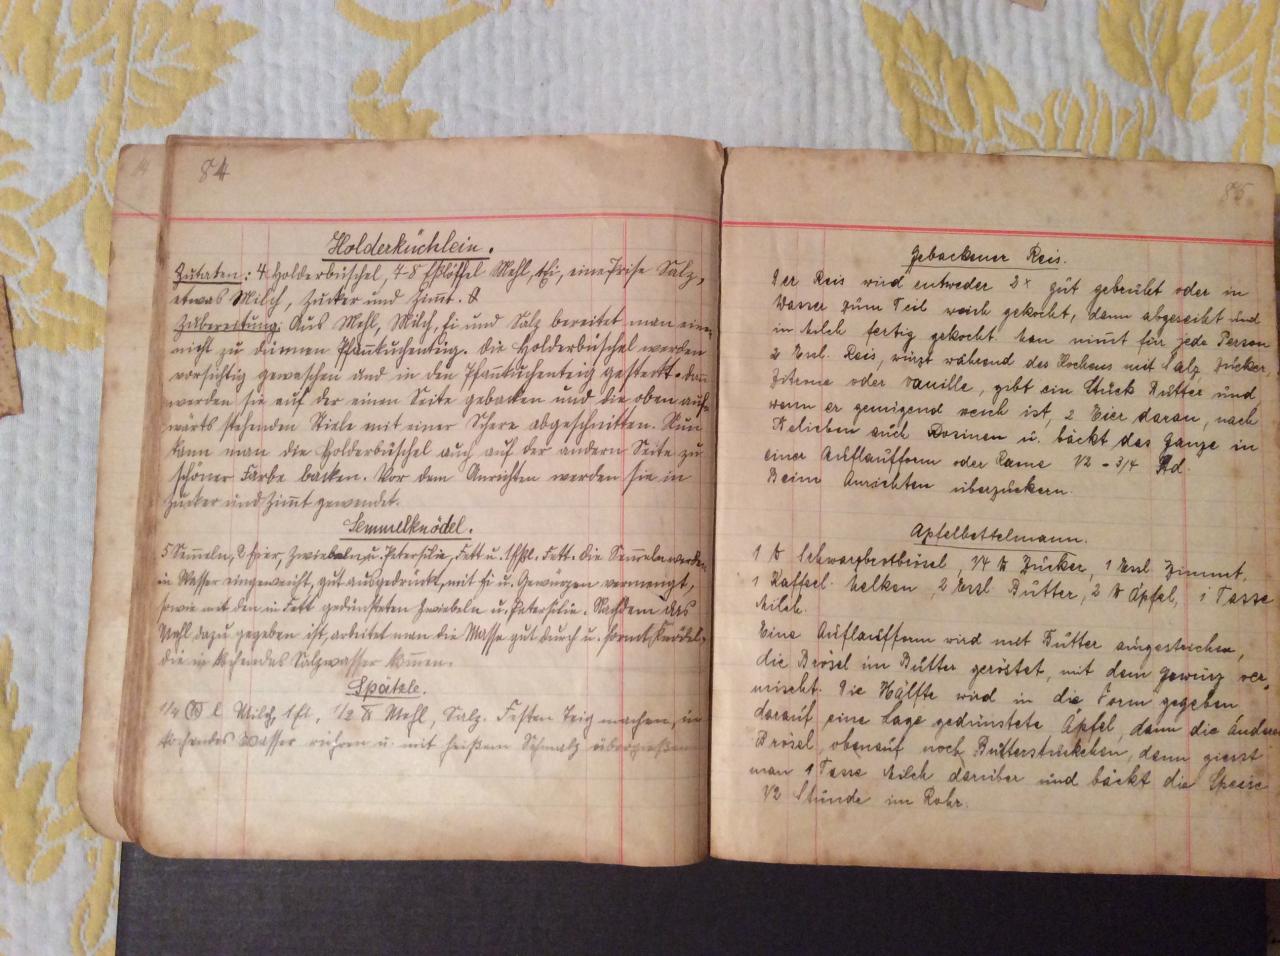 84
Holderküchlein.
Zutaten: 4 Holderbüschel, 7-8 Eßlöffel Mehl, Ei, eine Prise Salz,
etwas Milch, Zucker und Zimt.
Zubereitung: Aus Mehl, Milch, Ei und Salz bereitet man einen
nicht zu dünnen Pfannkuchenteig. Die Holderbüschel werden
vorsichtig gewaschen und in den Pfannkuchenteig gesteckt. Dann
werden sie auf der einen Seite gebacken und die oben auf-
wärts stehenden Stiele mit einer Schere abgeschnitten. Nun
kann man die Holderbüschel auch auf der andern Seite zu
schöner Farbe backen. Vor dem Anrichten werden sie in
Zucker und Zimt gewendet.
Semmelknödel.
5 Semmeln, 2 Eier, Zwiebeln u. Petersilie, Fett u. Eßl. Fett. Die Semmeln werden
in Wasser eingeweicht, gut ausgedrückt, mit Ei u. Gewürzen vermengt,
sowie mit den in Fett gedünsteten Zwiebeln u. Petersilie. Nachdem das
Mehl dazu gegeben ist, arbeitet man die Masse gut durch u. formt Knödel,
die in kochendes Salzwasser kommen.
Spätzle.
1/4 l Milch, 1 Ei, 1/2 ℔ Mehl, Salz. Festen Teig machen, in
kochendes Wasser rühren u. mit heißem Schmalz übergießen
85
Gebackener Reis.
Der Reis wird entweder 2x gut gebrüht oder in
Wasser zum Teil weich gekocht, dann abgeseiht und
in Milch fertig gekocht. Man nimt für jede Person
2 Essl. Reis, würzt während des Kochens mit Salz, Zucker,
Zitrone oder Vanille, gibt ein Stück Butter und
wenn er genügend weich ist, 2 Eier daran, nach
Belieben auch Rosinen u. bäckt das Ganze in
einer Auflaufform oder Raine 1/2 - 3/4 Std.
Beim Anrichten überzuckern.
Apfelbettelmann.
1 ℔ Schwarzbrotbrösel, 1/4 ℔ Zucker, 1 Essl Zimmt,
1 Kaffeel. Nelken, 2 Essl Butter, 2 ℔ Äpfel, 1 Tasse
Milch.
Eine Auflaufform wird mit Butter ausgestrichen,
die Brösel im Butter geröstet, mit dem Gewürz ver-
mischt. Die Hälfte wird in die Form gegeben
darauf eine Lage gedünstete Äpfel, dann die andere
Brösel, obenauf noch Butterstückchen, dann giesst
man 1 Tasse Milch darüber und bäckt die Speise
1/2 Stunde im Rohr.